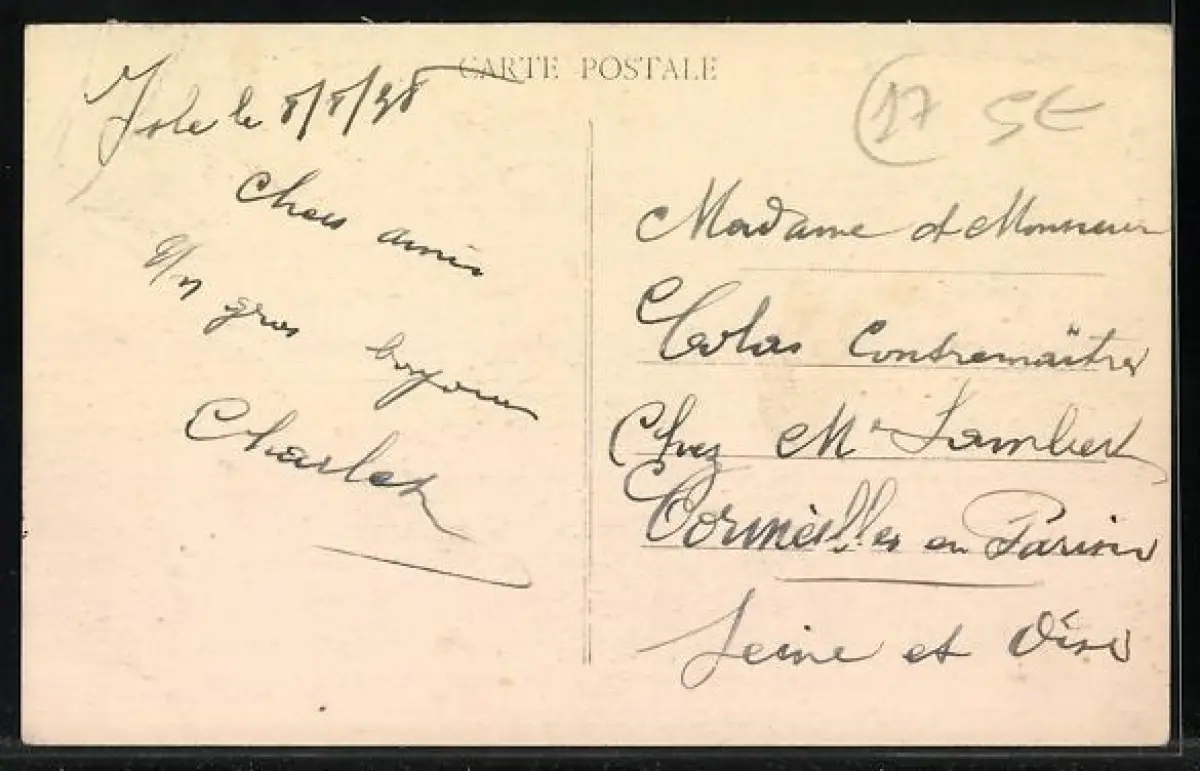 CARTE POSTALE
Isle le 8/8/38
17 5E
Chers amis
Un gros
bonjour
Charlet
Madame et Monsieur
Colas Contremaître
Chez Mr Lambert
Cormeilles en Parisis
Seine et Oise